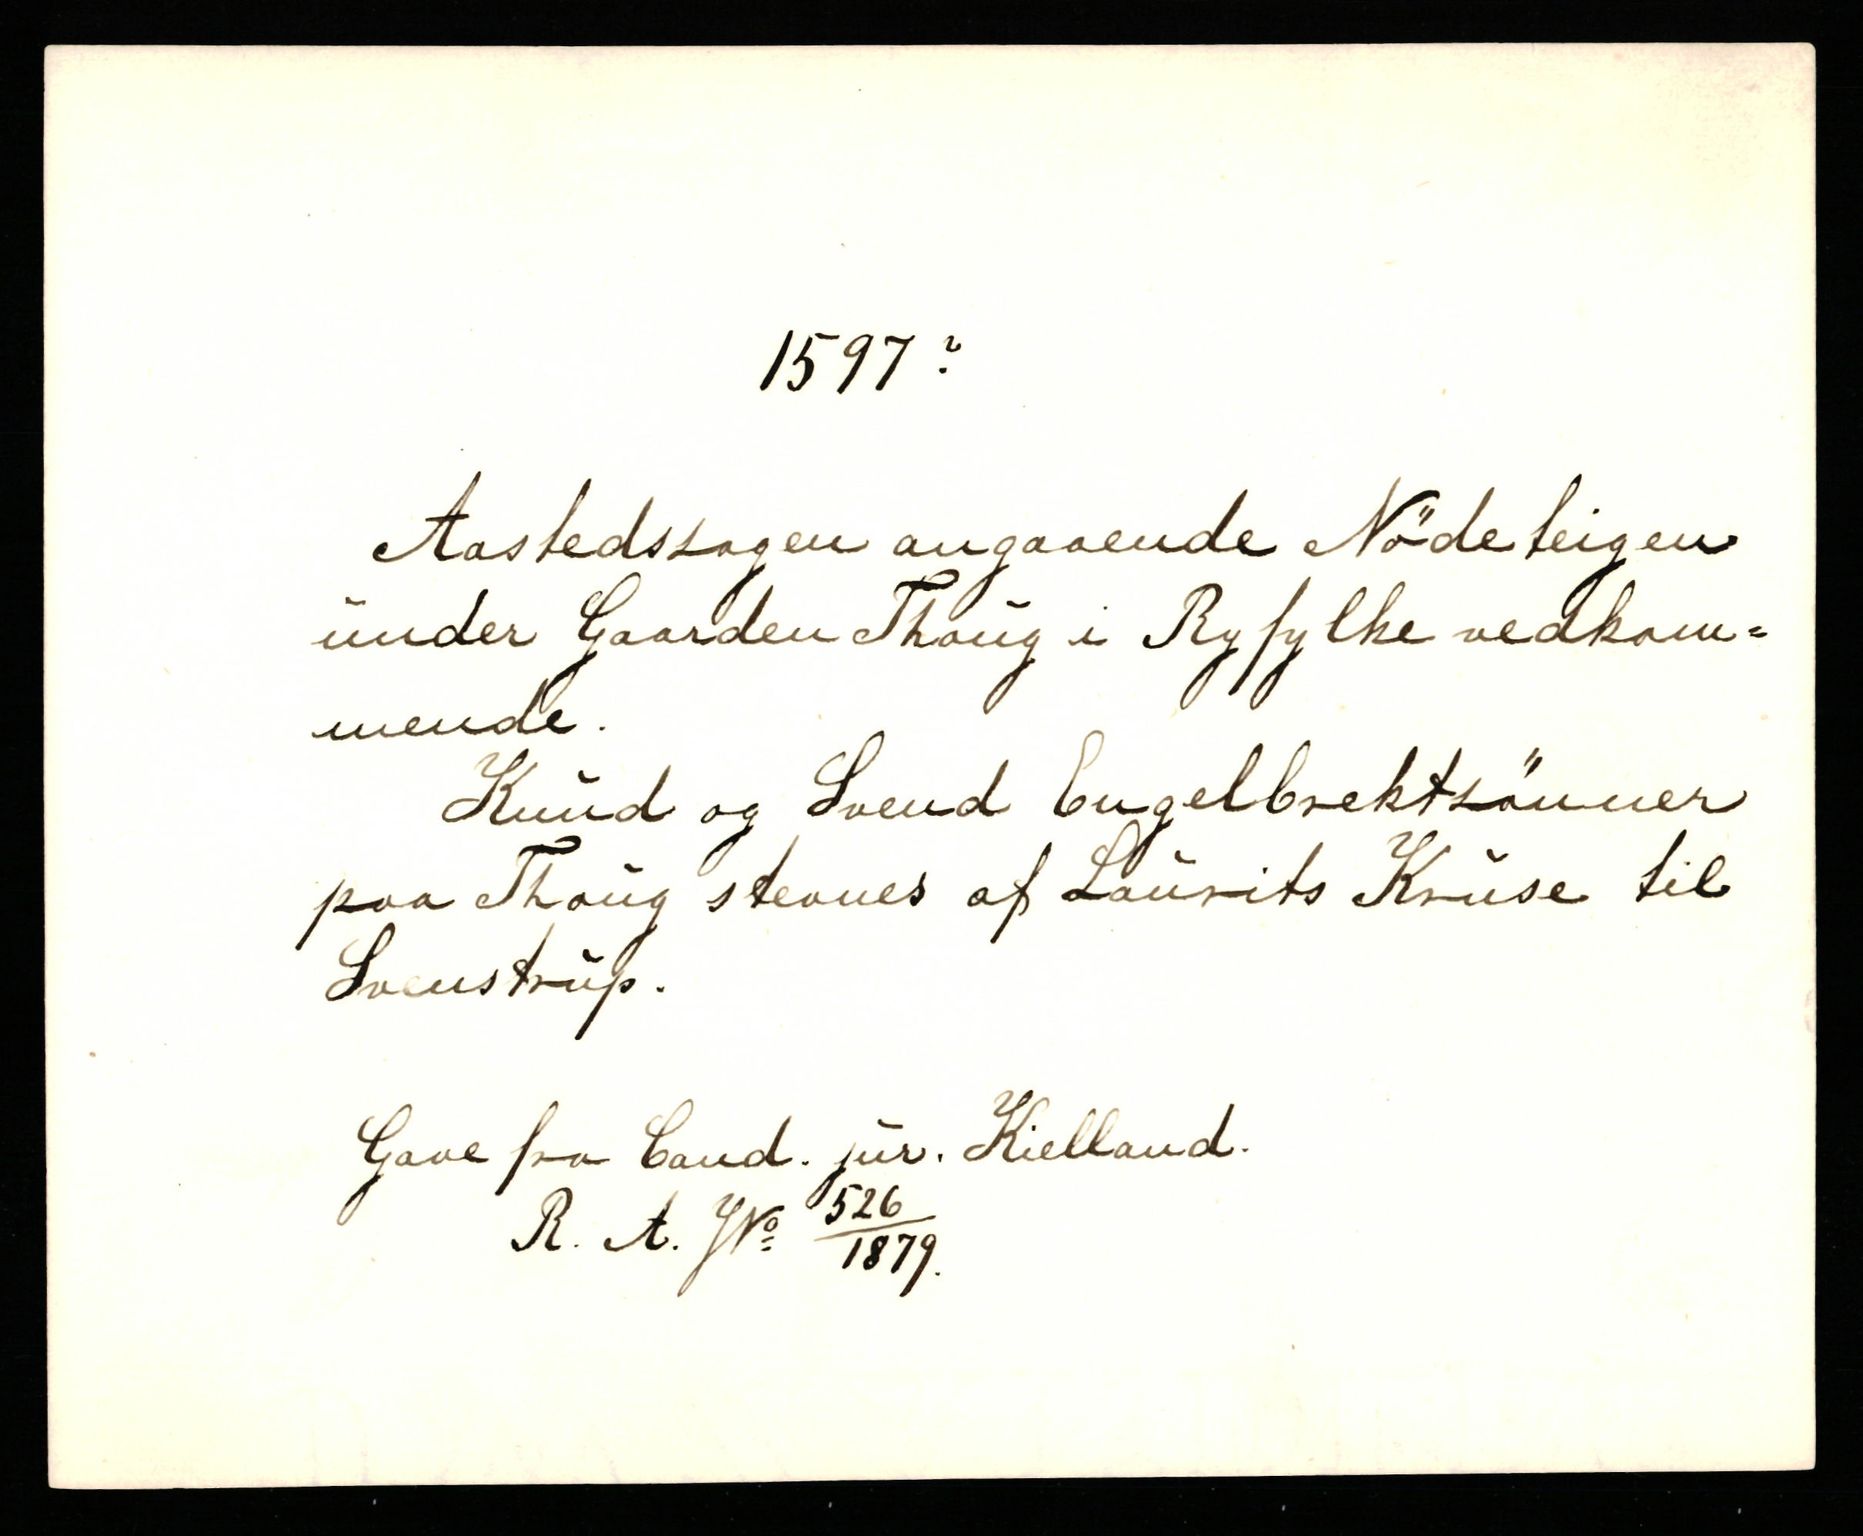 1597?
Aastedssagen angaaende Nödeteigen
under Gaarden Thoug i Ryfylke vedkom=
mende.
Knud og Svend Engelbrektsönner
paa Thoug stevnes af Laurits Kruse til
Svenstrup.
Gave fra Cand. jur. Kielland.
R. A. J No 526/1879.